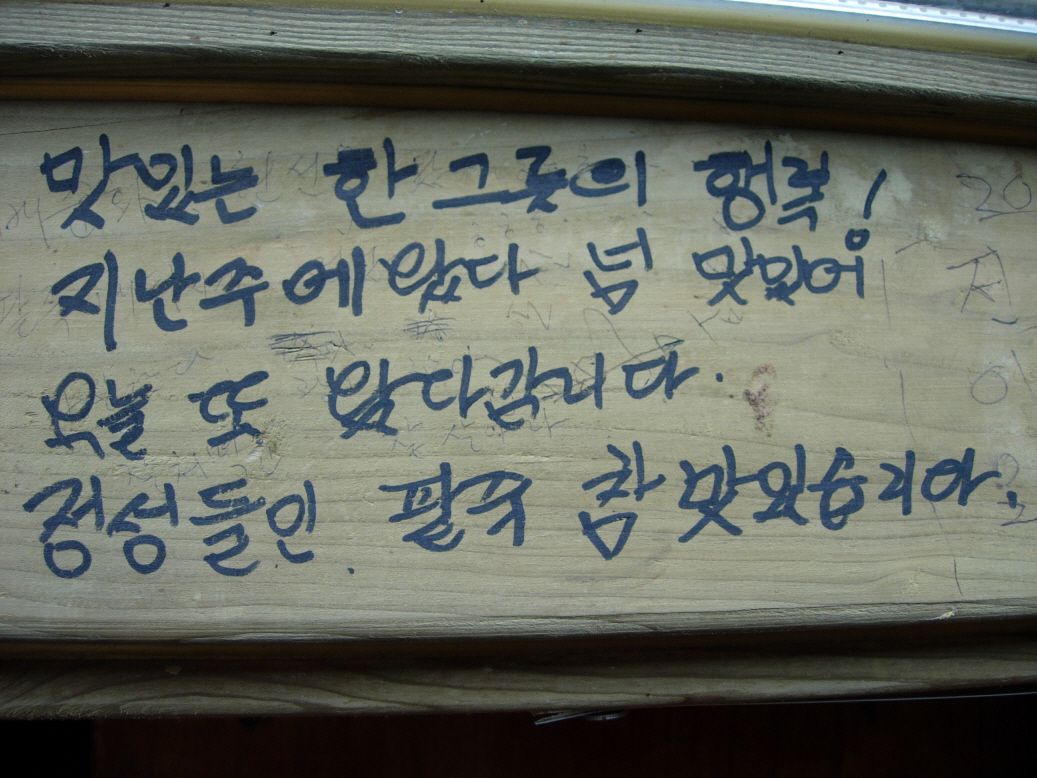 맛있는 한그릇의 행복!
지난주에 왔다 넘 맛있어
오늘 또 왔다갑니다.
정성들인. 팥죽 참 맛있습니다.
20